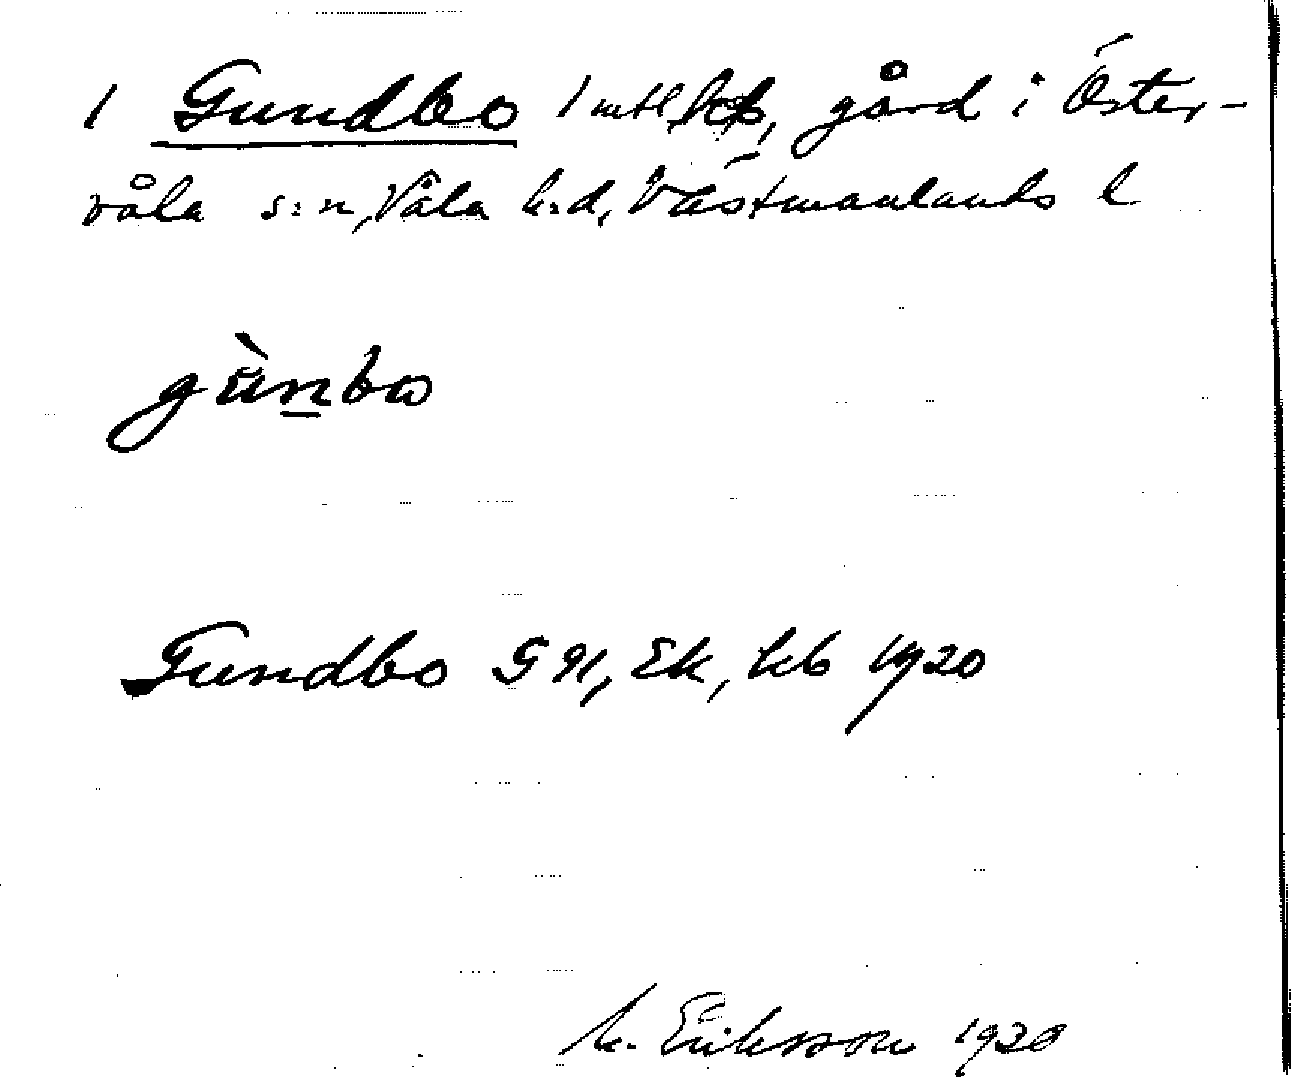 1 Gundbo 1 mtl, kb, gård i Öster-
våla s:n, Våla h:d, Västmanlands l
gùnbω
Gundbo GK, Ek, kb 1920
M. Eriksson 1920